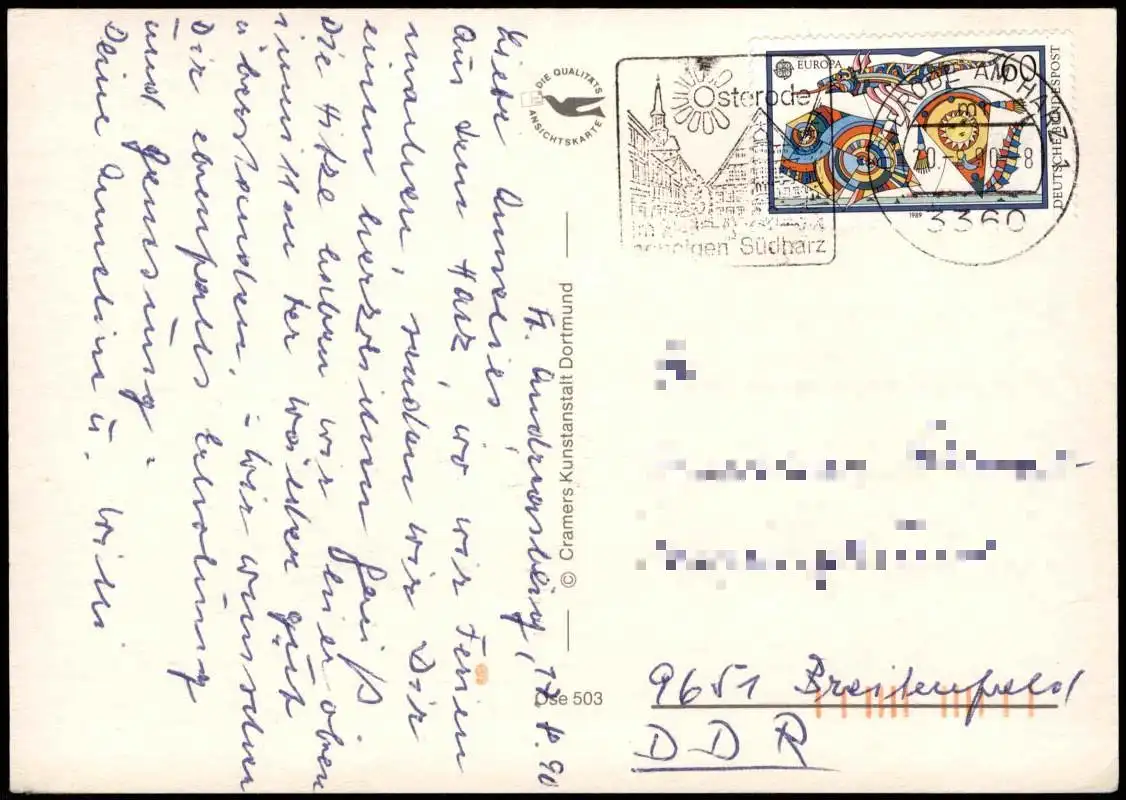 St. Andreasberg, 17.8.90
Liebe Annelies!
Aus dem Harz, wo wir Ferien
machen, senden wir Dir
einen herzlichen Gruß
Die Hitze haben wir hier oben
inmitten der Wälder gut
überstanden. - Wir wünschen
Dir ebenfalls Erholung
und Genesung
Deine Annelise u. Willi
DIE QUALITÄTS
ANSICHTSKARTE
© Cramers Kunstanstalt Dortmund
Ose 503
Osterode
im
Südharz
EUROPA
60
DEUTSCHE BUNDESPOST
1989
OSTERODE AM HARZ 1
3360
9651 Breitenfeld
DDR